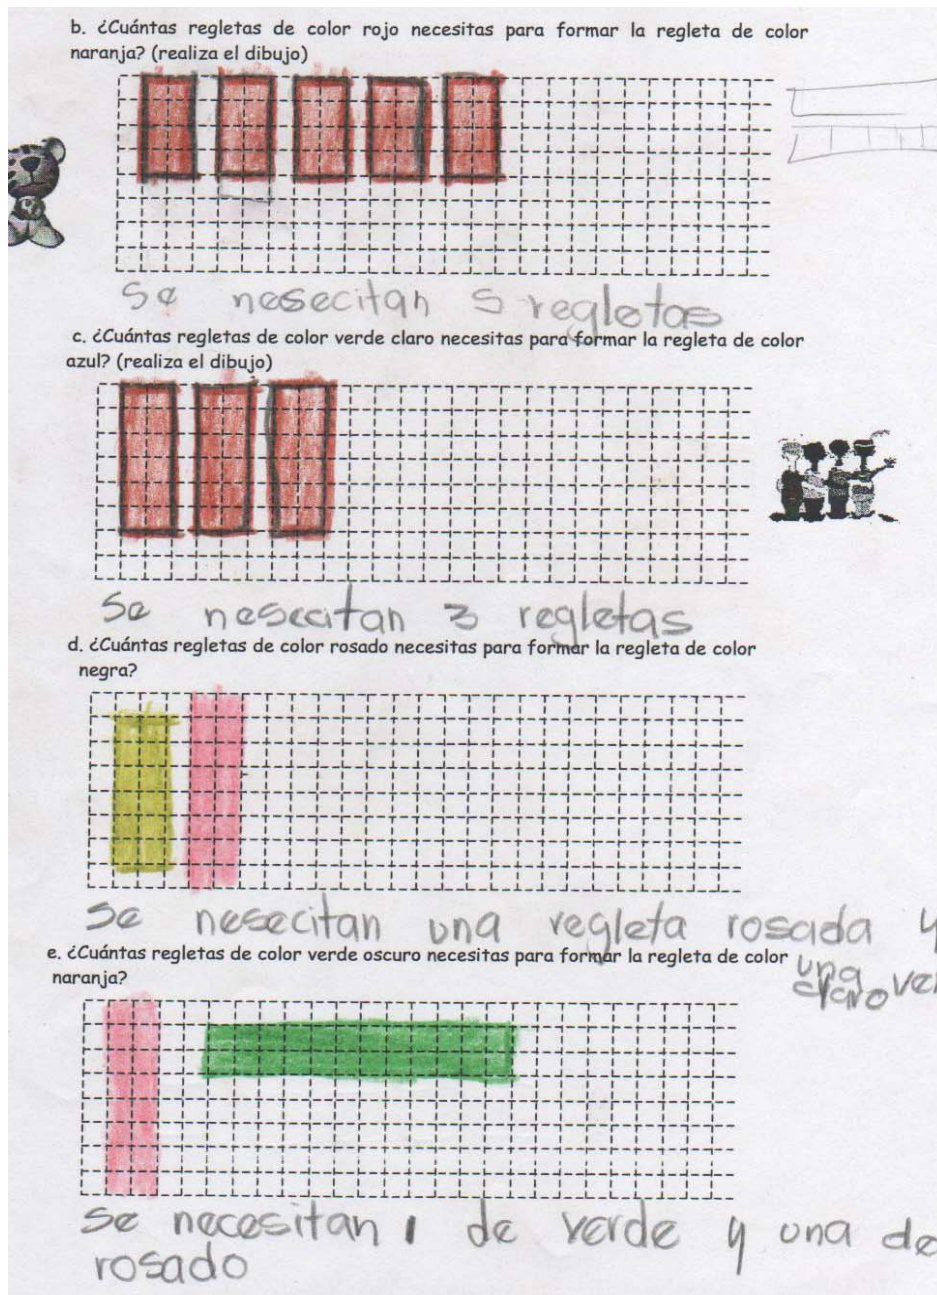 b. ¿Cuántas regletas de color rojo necesitas para formar la regleta de color
naranja? (realiza el dibujo)
Se nesecitan 5 regletas
c. ¿Cuántas regletas de color verde claro necesitas para formar la regleta de color
azul? (realiza el dibujo)
Se nesecitan 3 regletas
d. ¿Cuántas regletas de color rosado necesitas para formar la regleta de color
negra?
Se nesecitan una regleta rosada y
una ver
claro
e. ¿Cuántas regletas de color verde oscuro necesitas para formar la regleta de color
naranja?
Se necesitan 1 de verde y una de
rosado